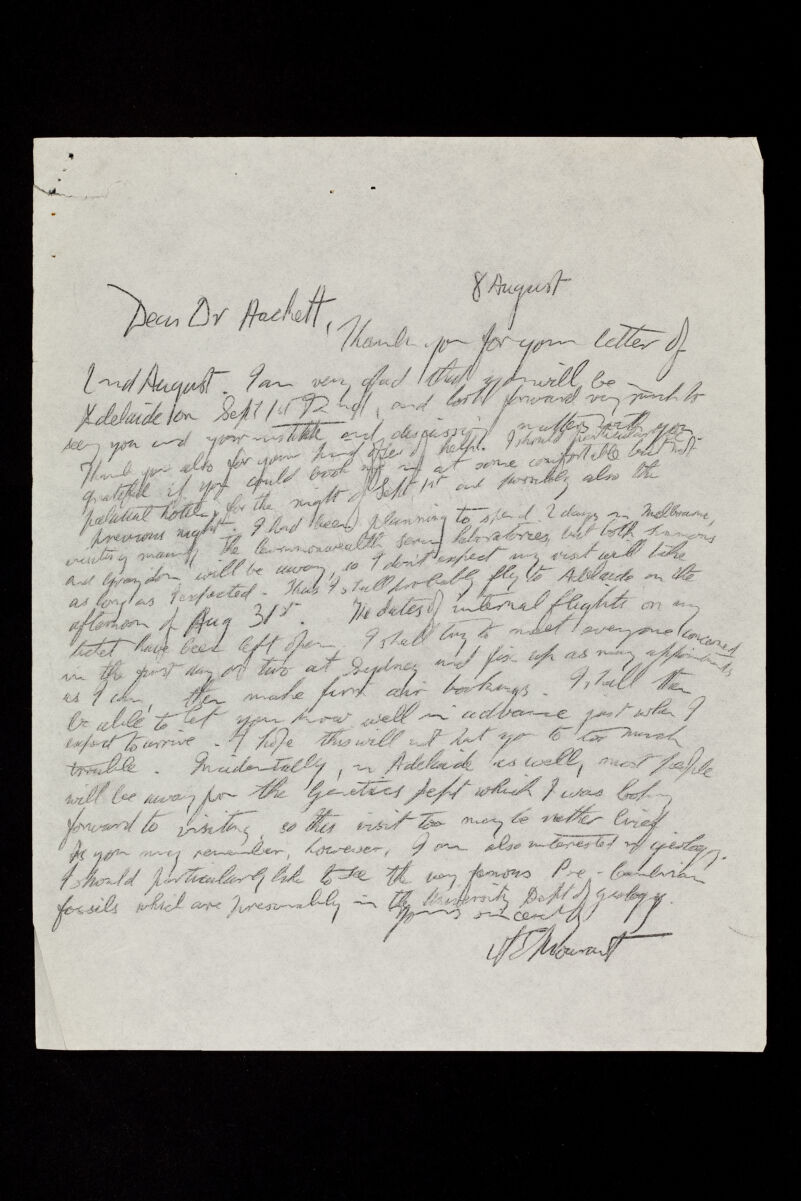 8 August
Dear Dr Hackett,
Thank you for your letter of
2nd August. I am very glad that you will be in
Adelaide on Sept 1st & 2nd, and look forward very much to
seeing you and your institute and discussing matters with you.
Thank you also for your kind offer of help. I should be particularly
grateful if you could book me in at some comfortable but not
palatial hotel, for the night of Sept 1st and possibly also the
previous night. I had been planning to spend 2 days in Melbourne,
visiting mainly the Commonwealth Serum Laboratories, but both Simmons
and Graydon will be away, so I don't expect my visit will take
as long as I expected. Thus I shall probably fly to Adelaide on the
afternoon of Aug 31st. The dates of internal flights on my
ticket have been left open. I shall try to meet everyone concerned
in the first day or two at Sydney and fix up as many appointments
as I can, then make firm air bookings. I shall then
be able to let you know well in advance just when I
expect to arrive. I hope this will not put you to too much
trouble. Incidentally, in Adelaide as well, most people
will be away from the Genetics Dept which I was looking
forward to visiting, so this visit too may be rather brief.
As you may remember, however, I am also interested in geology.
I should particularly like to see the very famous Pre-Cambrian
fossils which are presumably in the University Dept of Geology.
Yours sincerely
A E Mourant